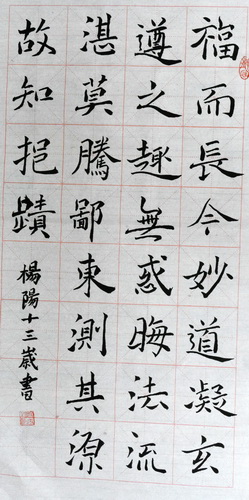 福而長今妙道凝玄
遵之趣無惑晦法流
湛莫騰鄙東測其源
故知挹蹟
楊陽十三歲書